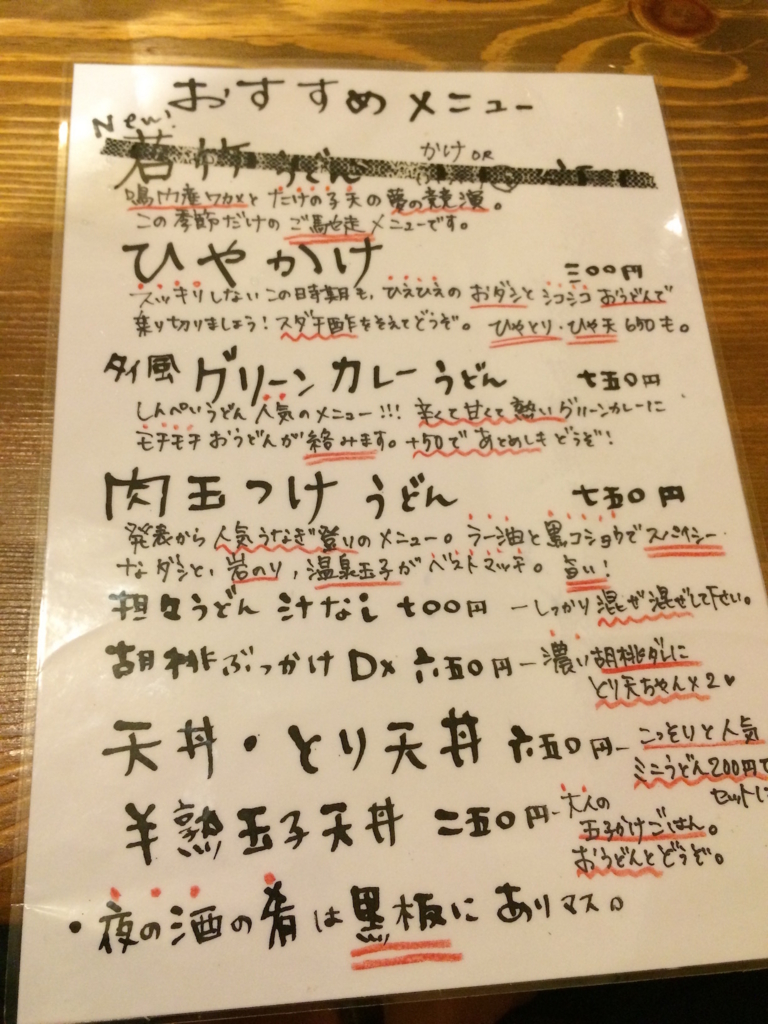 おすすめメニュー
New!
若竹うどん かけ OR
鳴門産ワカメとたけの子天の夢の競演。
この季節だけのご馳走メニューです。
ひやかけ 三〇〇円
スッキリしないこの時期も、ひえひえのおダシとシコシコおうどんで
乗り切りましょう!スダチ酢をそえてどうぞ。 ひやとり・ひや天650も。
タイ風 グリーンカレーうどん 七五〇円
しんぺいうどん人気のメニュー!!! 辛くて甘くて熱いグリーンカレーに
モチモチおうどんが絡みます。+50であとめしもどうぞ!
肉玉つけうどん 七五〇円
発表から人気うなぎ登りのメニュー。ラー油と黒コショウでスパイシー
なダシと、岩のり、温泉玉子がベストマッチ。旨い!
担々うどん 汁なし 七〇〇円 ーしっかり混ぜ混ぜして下さい。
胡桃ぶっかけDX 六五〇円ー濃い胡桃ダレに
とり天ちゃん×2♥
天丼・とり天丼 六五〇円ーこっそりと人気
ミニうどん200円で
セットに
半熟玉子天丼 二五〇円ー大人の
玉子かけごはん。
おうどんとどうぞ。
・夜の酒の肴は黒板にありマス。